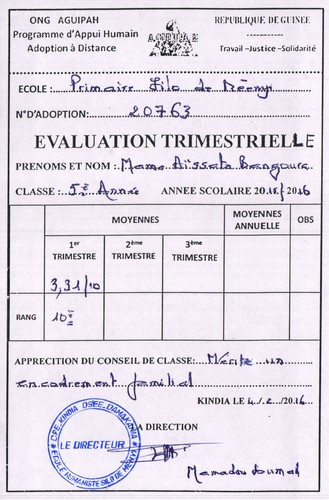 ONG AGUIPAH
Programme d'Appui Humain
Adoption à Distance
REPUBLIQUE DE GUINEE
Travail -Justice -Solidarité
AGUIPAH
ECOLE : Primaire Silo de Mènyi
N°D'ADOPTION: 20763
EVALUATION TRIMESTRIELLE
PRENOMS ET NOM : Mama Aïssata Bangoura
CLASSE : 5è Année ANNEE SCOLAIRE 2015/2016
MOYENNES
MOYENNES ANNUELLE
OBS
1er TRIMESTRE
2ème TRIMESTRE
3ème TRIMESTRE
3,31/10
RANG 10è
APPRECITION DU CONSEIL DE CLASSE: Mérite un
encadrement familial
KINDIA LE 4/2/2016
LA DIRECTION
CFE. KINDIA DSEE. DAMAKANIA
LE DIRECTEUR
ECOLE HUMANISTE SILO DE MENYA
Mamadou Oumah